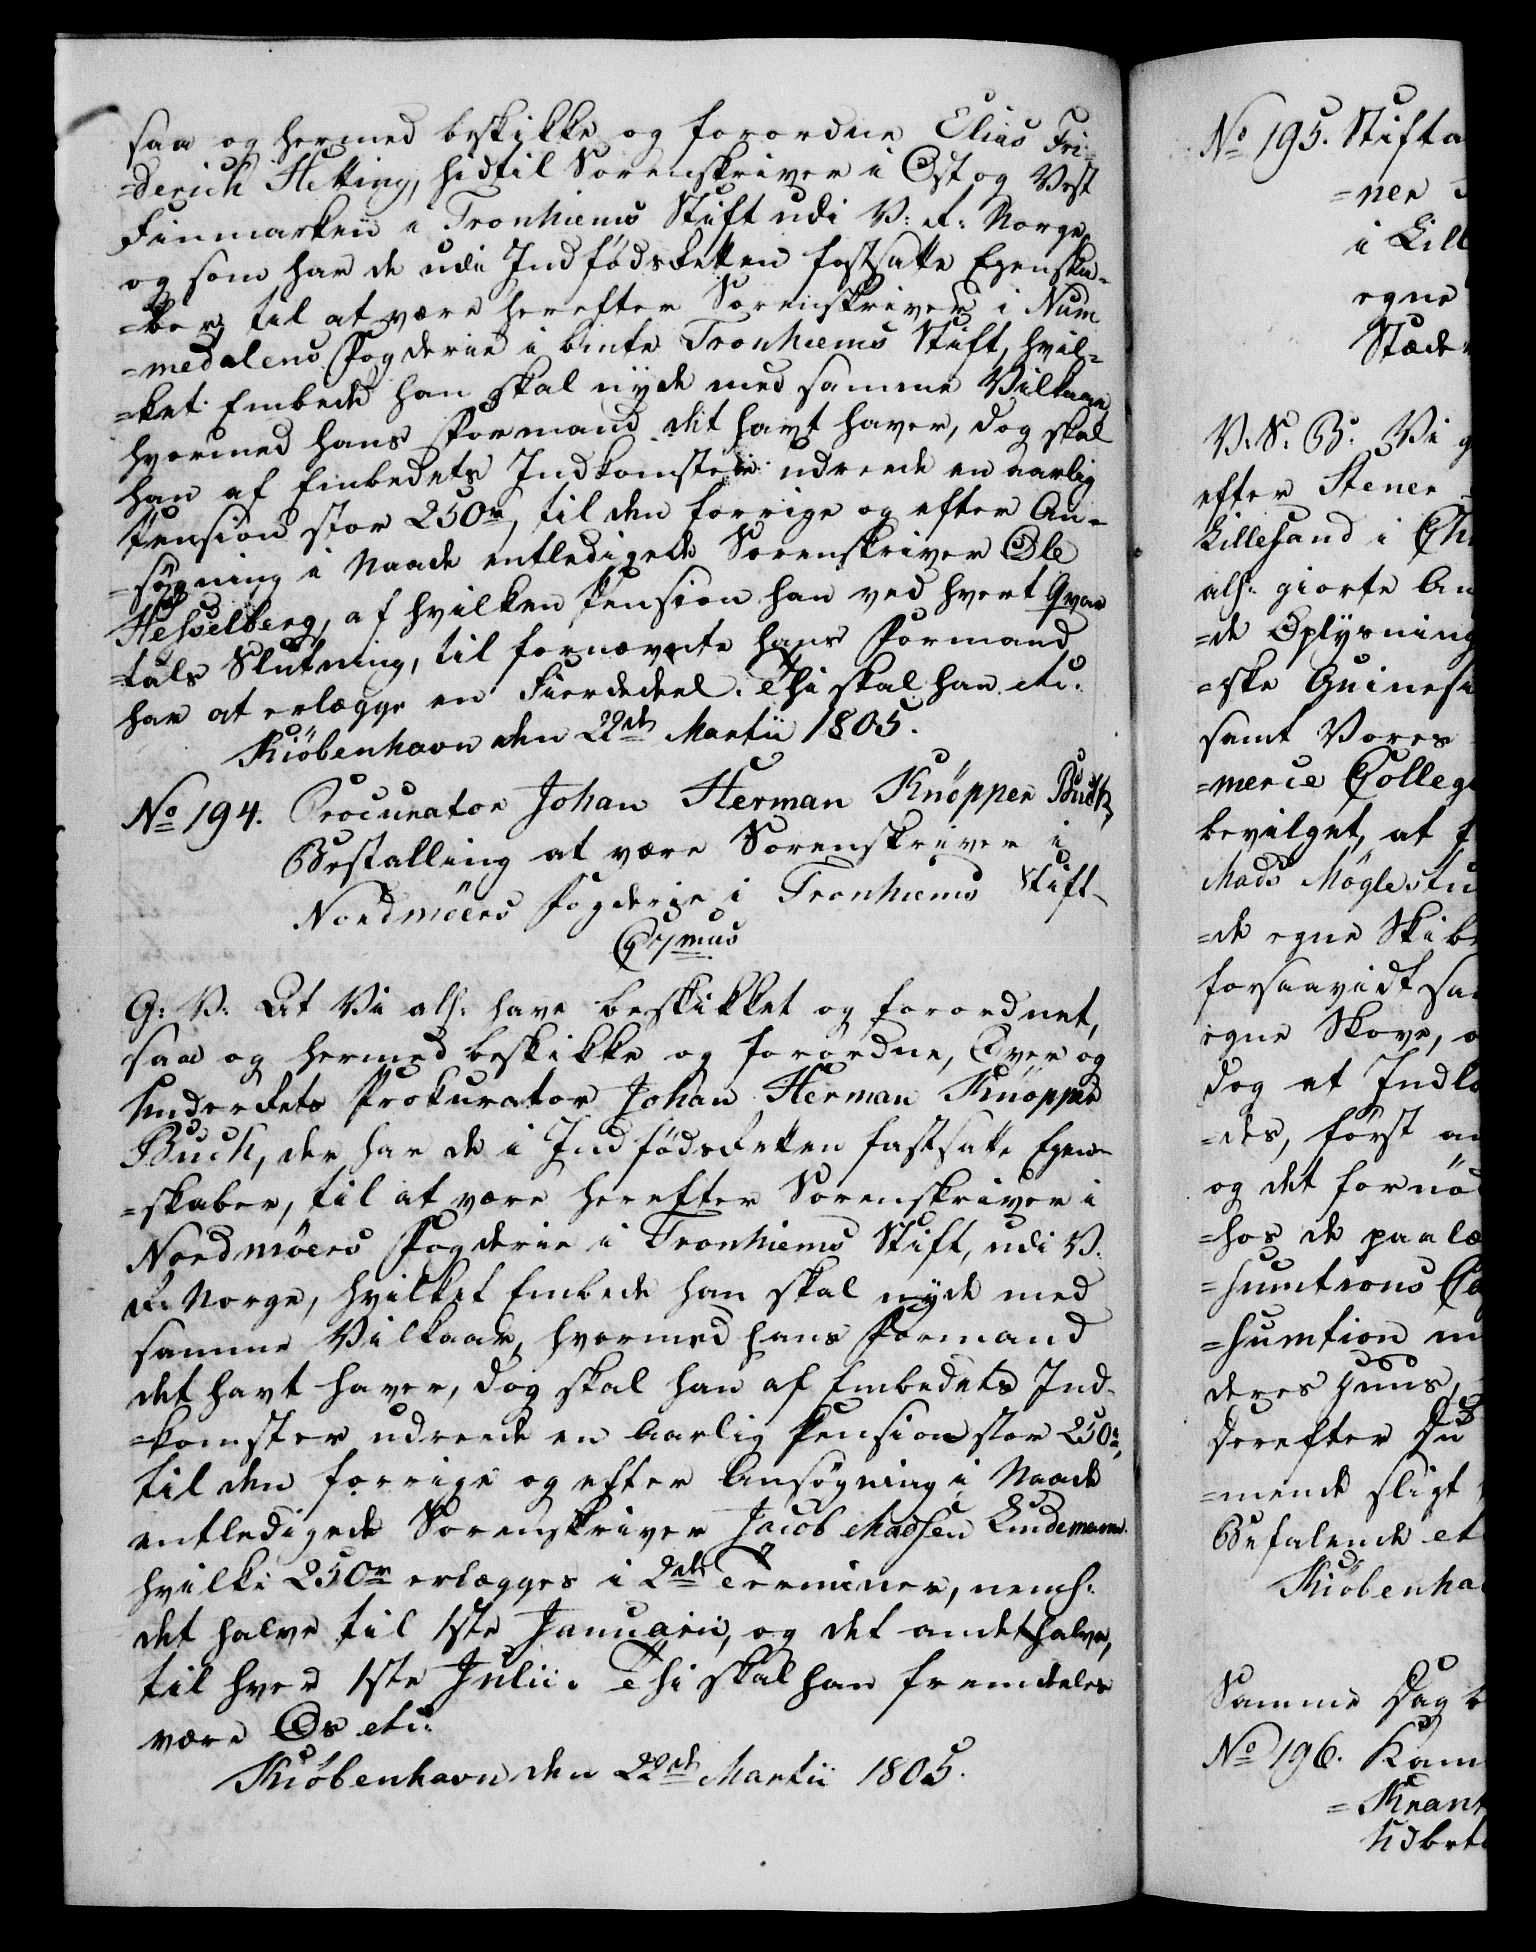 saa og hermed beskikke og forordne Elias Fri-
=derich Hetting, hidtil Sorenskriver i Øst og Vest
Finmarken i Tronhiems Stift udi V: R: Norge,
og som har de udi Indfødsretten fastsatte Egenska-
=ber, til at være herefter Sorenskriver i Num
=medalens Fogderie i bmte Tronhiems Stift, hvil=
=ket Embede han skal nyde med samme Vilkaar,
hvormed hans Formand det havt haver, dog skal
han af Embedets Indkomster udreede en aarlig
Pension stor 250rd, til den forrige og efter An-
=søgning i Naade entledigede Sorenskriver Ole
Hesselberg, af hvilken Pension han ved hvert Qvar
=tals Slutning, til fornævnte hans Formand
har at erlægge en Fierdedeel. Thi skal han etc.
Kiöbenhavn den 22de Martii 1805.
No 194. Procurator Johan Herman Knöpper Buch,
Bestalling at være Sorenskriver i
Nordmöers Fogderie i Tronhiems Stift
C. 7mus
G: V: At Vi als: have beskikket og forordnet,
saa og hermed beskikke og forordne, Over og
Underrets Prokurator Johan Herman Knöpper
Buch, der har de i Indfødsretten fastsatte Egen-
=skaber, til at være herefter Sorenskriver i
Nordmöers Fogderie i Tronhiems Stift, udi V.
R. Norge, hvilket Embede han skal nyde med
samme Vilkaar, hvormed hans Formand
det havt haver, dog skal han af Embedets Ind-
=komster udreede en Aarlig Pension stor 250rd,
til den forrige og efter Ansøgning i Naade
entledigede Sorenskriver Jacob Madsen Lindemann.
hvilke 250rd erlægges i 2de Terminer, neml:
det halve til 1ste Januarii, og det andet halve,
til hver 1ste Julii. Thi skal han fremdeles
være Os etc.
Kiöbenhavn den 22de Martii 1805.
No 195. Stifta
=ner
i Lill
egne
Stæde
V. S. B: Vi g
efter Stener
Lillesand i Ch
als: giorte An
=de Oplysning
=ske Guinesi
samt Vores
=merce Colleg
bevilget, at
Mads Möglestu
=de egne Skibe
forsaavidt sa
egne Skove, o
dog at Indla
=des, först an
og det fornöd
=hos de paalæ
=sumtions Ca
=sumtion
deres Huus,
derefter Du
=mende sligt
Befalende et
Kiöbenha
Samme Dag b
No 196. Kam
=Krant
Udbet